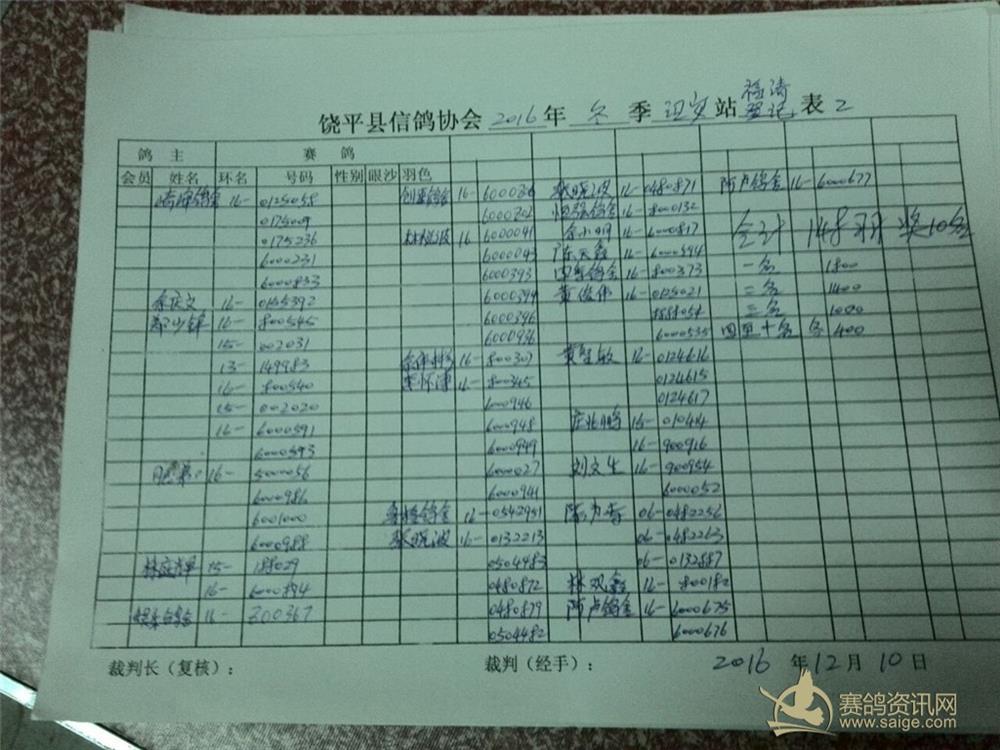 饶平县信鸽协会 2016 年 冬 季 站 登记 表 2
鸽 主 赛 鸽
会员 姓名 环名 号码 性别 眼沙 羽色
16- 0125058 创亚鸽舍 16- 张晓波 16- 0480871 陈卢鸽舍 16- 6000677
0175009 6000302 恒强鸽舍 16- 8000132
0175236 16 6000041 余小明 16- 6000817 合计 148羽 奖10名
6000231 6000043 16- 6000594
6000833 6000393 16- 800373 一名 1800
余庆文 16- 0125392 6000394 黄俊伟 16- 0125021 二名 1400
郑少镇 16- 800545 6000396 三名 1000
15- 002031 6000936 6000535 四至十名 各 400
13- 149983 16- 800307 16- 0124616
16- 800540 16- 800345 0124615
15- 002020 6000946 0124617
16- 6000591 6000948 庄兆鹏 16- 010414
6000593 6000949 16- 900916
16- 5000056 6000027 刘文生 16- 900954
6000986 6000941 6000052
6001000 16- 0542951 06- 0482256
6000988 张晓波 16- 0132213 06- 0482263
15- 188029 0504483 06- 0132887
16- 6000894 0480872 林双鑫 16- 800182
16- 300367 0480879 陈卢鸽舍 16- 6000675
0504482 6000676
裁判长（复核）： 裁判（经手）： 2016 年 12 月 10 日
赛鸽资讯网
www.saige.com